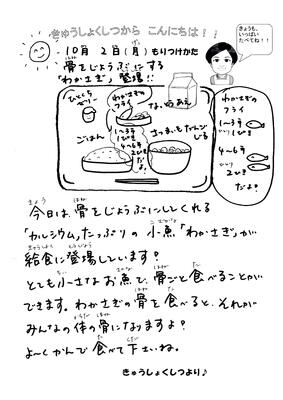 きゅうしょくしつから こんにちは!!
きょうも、
いっぱい
たべてね!!
10月 2日(月)もりつけかた
骨をじょうぶにする
「わかさぎ」登場!!
ひとくち
ゼリー
わかさぎの
フライ
1〜3年
1ぴき
4〜6年
2ひき
だよ!
なっとうあえ
ごはん
さつまいもだんご
じる
わかさぎの
フライ
1〜3年
1ぴき
4〜6年
2ひき
だよ!
今日は、骨をじょうぶにしてくれる
「カルシウム」たっぷりの小魚「わかさぎ」が
給食に登場します!
とても小さなお魚で、骨ごと食べることが
できます。わかさぎの骨を食べると、それが
みんなの体の骨になりますよ!
よ〜くかんで食べて下さいね。
きゅうしょくしつより♪